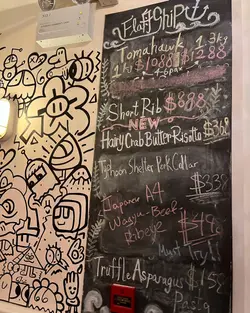 Flagship
Tomahawk 1.3kg
1kg $1088
Short Rib $688
NEW
Hairy Crab Butter Risotto $368
Typhoon Shelter Pork Collar
$338
Japanese A4
Wagyu Beef
Ribeye
Must Try
Truffle Asparagus $158
Pasta